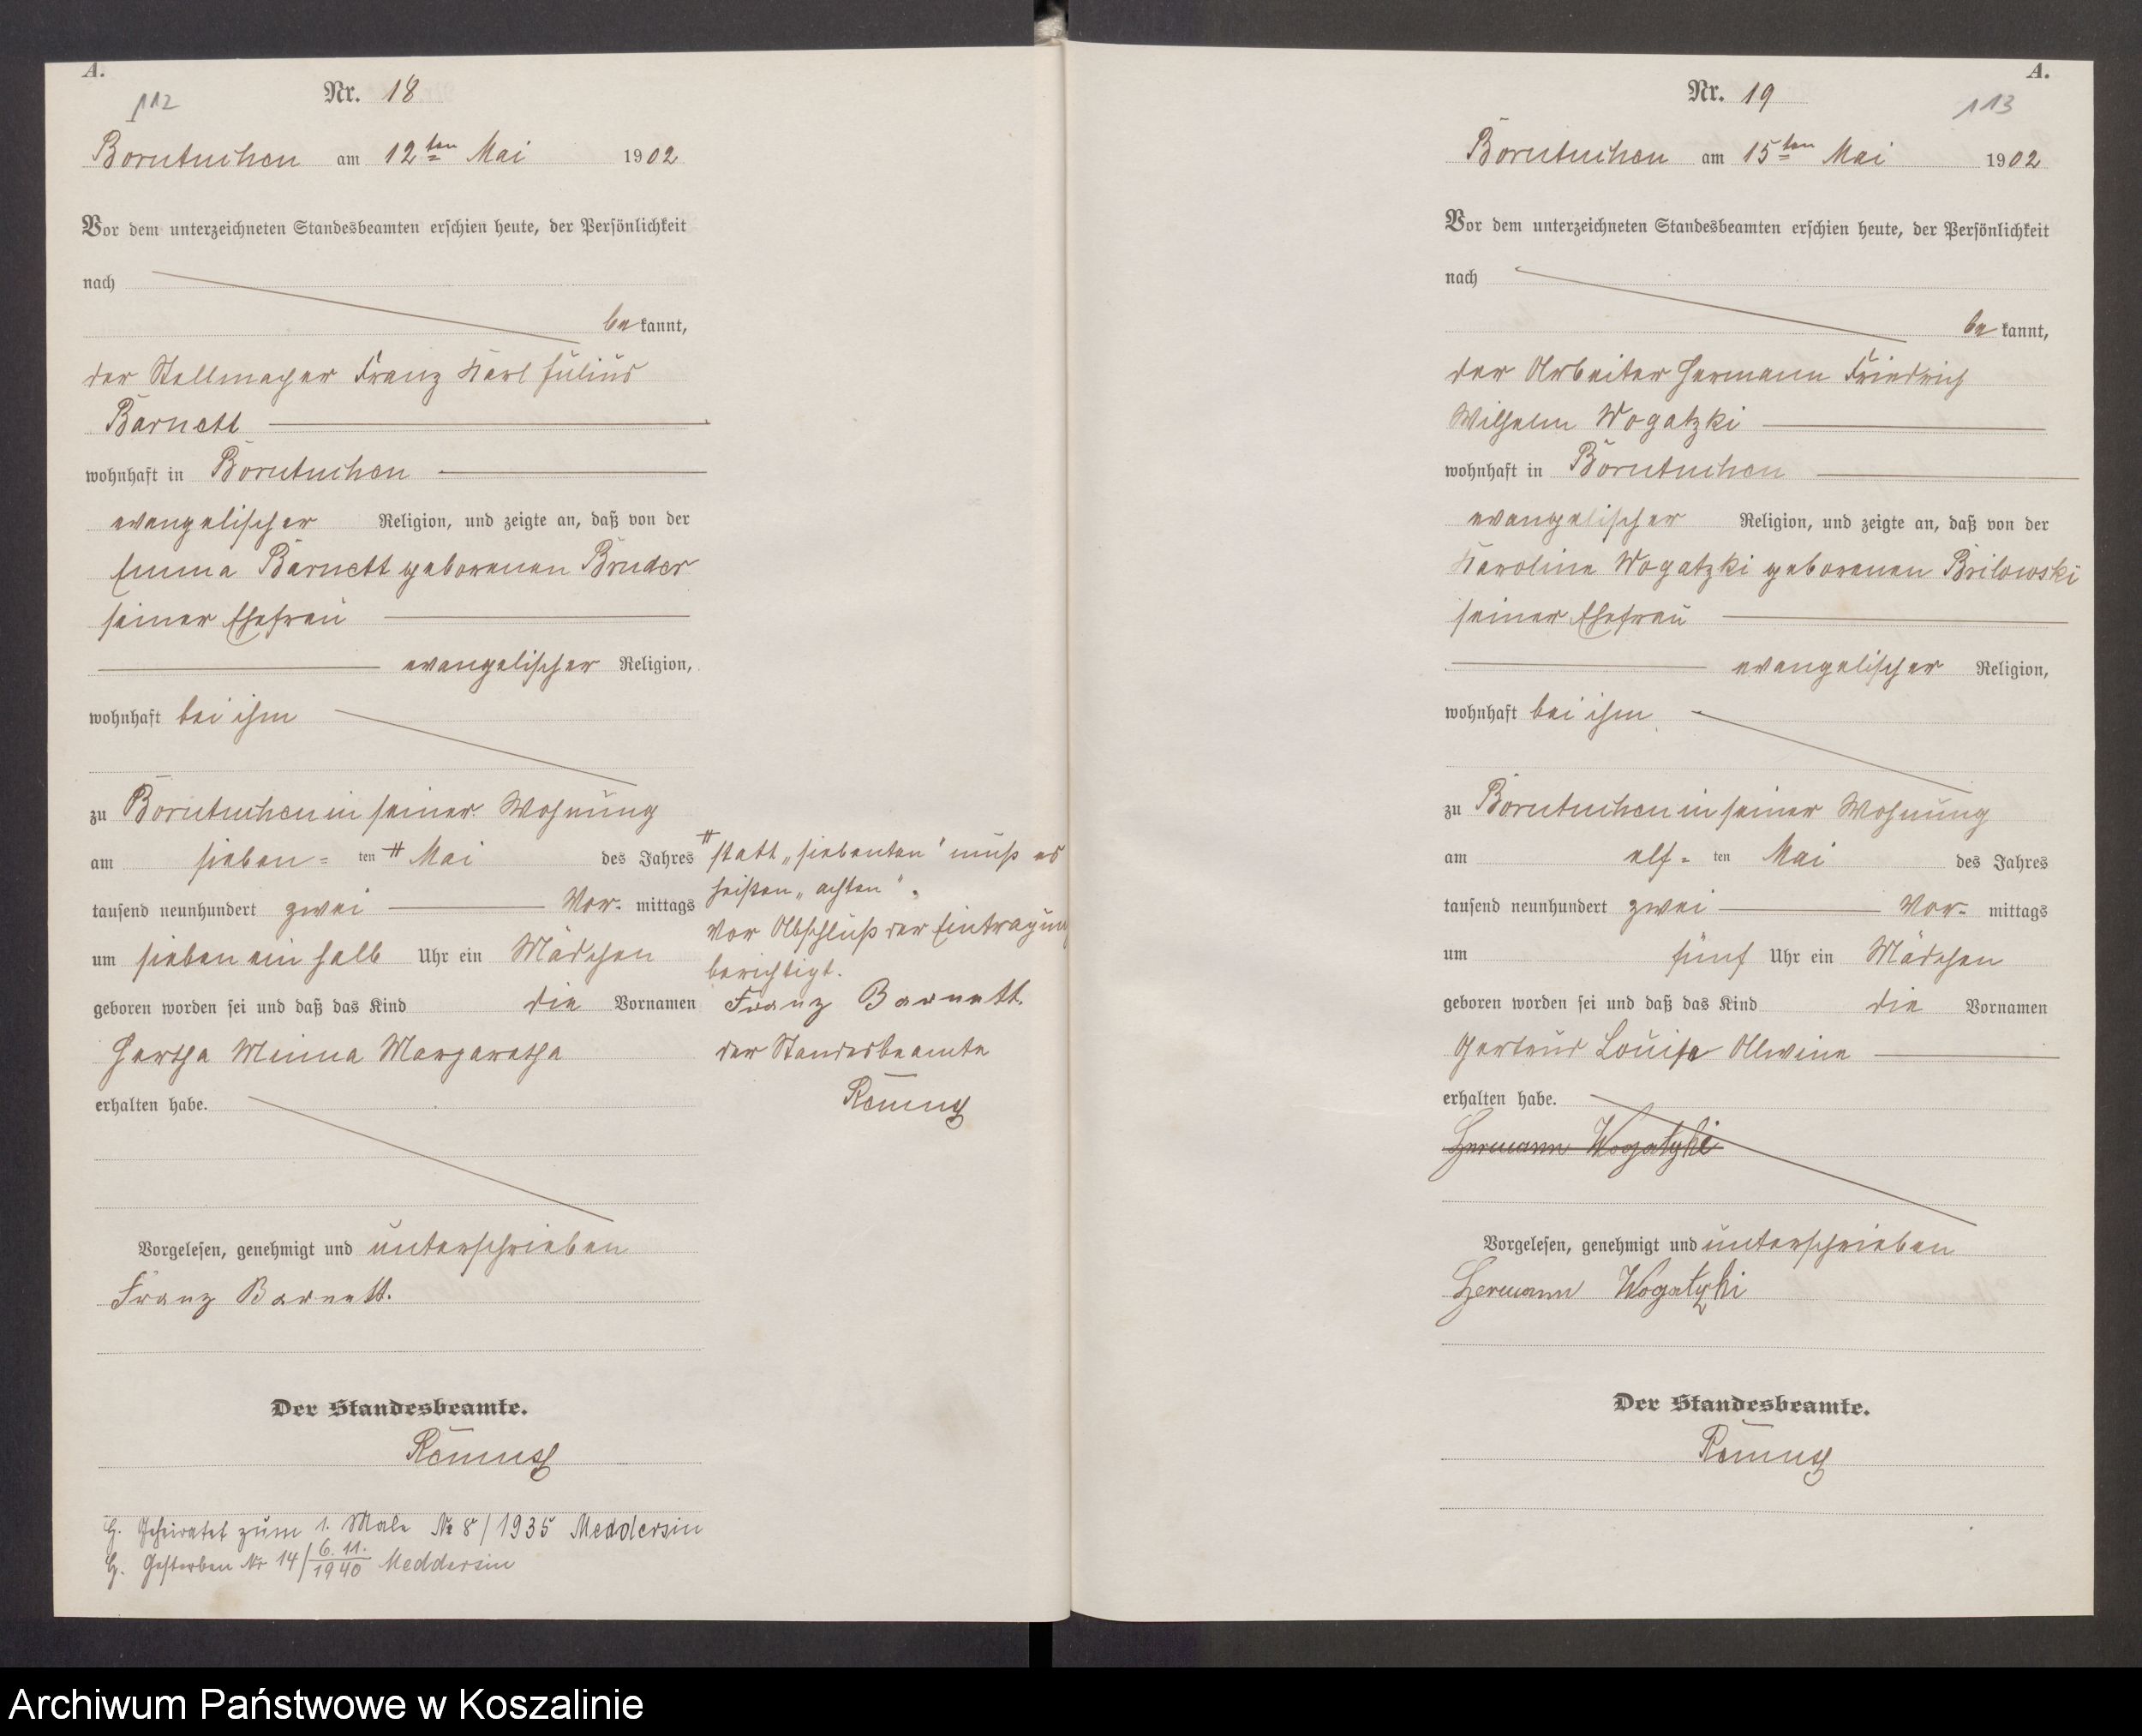 A.
112
Nr. 18
Borntuchen am 12ten Mai 1902
Vor dem unterzeichneten Standesbeamten erschien heute, der Persönlichkeit
nach
be kannt,
der Stellmacher Franz Karl Julius
Barnett
wohnhaft in Borntuchen
evangelischer Religion, und zeigte an, daß von der
Emma Barnett geborenen Bruder
seiner Ehefrau
evangelischer Religion,
wohnhaft bei ihm
zu Borntuchen in seiner Wohnung
am sieben= ten # Mai des Jahres
tausend neunhundert zwei Vor- mittags
um sieben ein halb Uhr ein Mädchen
geboren worden sei und daß das Kind die Vornamen
Hertha Minna Margaretha
erhalten habe.
Vorgelesen, genehmigt und unterschrieben
Franz Barnett.
Der Standesbeamte.
Remus
H. Geheiratet zum 1. Male No 8/1935 Meddersin
H. Gestorben Nr 14/6.11.1940 Meddersin
# statt „siebenten“ muß es
heißen „achten“.
Vor Abschluß der Eintragung
berichtigt.
Franz Barnett.
der Standesbeamte
Remus
A.
113
Nr. 19
Borntuchen am 15ten Mai 1902
Vor dem unterzeichneten Standesbeamten erschien heute, der Persönlichkeit
nach
be kannt,
der Arbeiter Hermann Friedrich
Wilhelm Wogatzki
wohnhaft in Borntuchen
evangelischer Religion, und zeigte an, daß von der
Karoline Wogatzki geborenen Brilowski
seiner Ehefrau
evangelischer Religion,
wohnhaft bei ihm
zu Borntuchen in seiner Wohnung
am elf= ten Mai des Jahres
tausend neunhundert zwei Vor- mittags
um fünf Uhr ein Mädchen
geboren worden sei und daß das Kind die Vornamen
Gertrud Louise Allwine
erhalten habe.
Hermann Wogatzki
Vorgelesen, genehmigt und unterschrieben
Hermann Wogatzki
Der Standesbeamte.
Remus
Archiwum Państwowe w Koszalinie